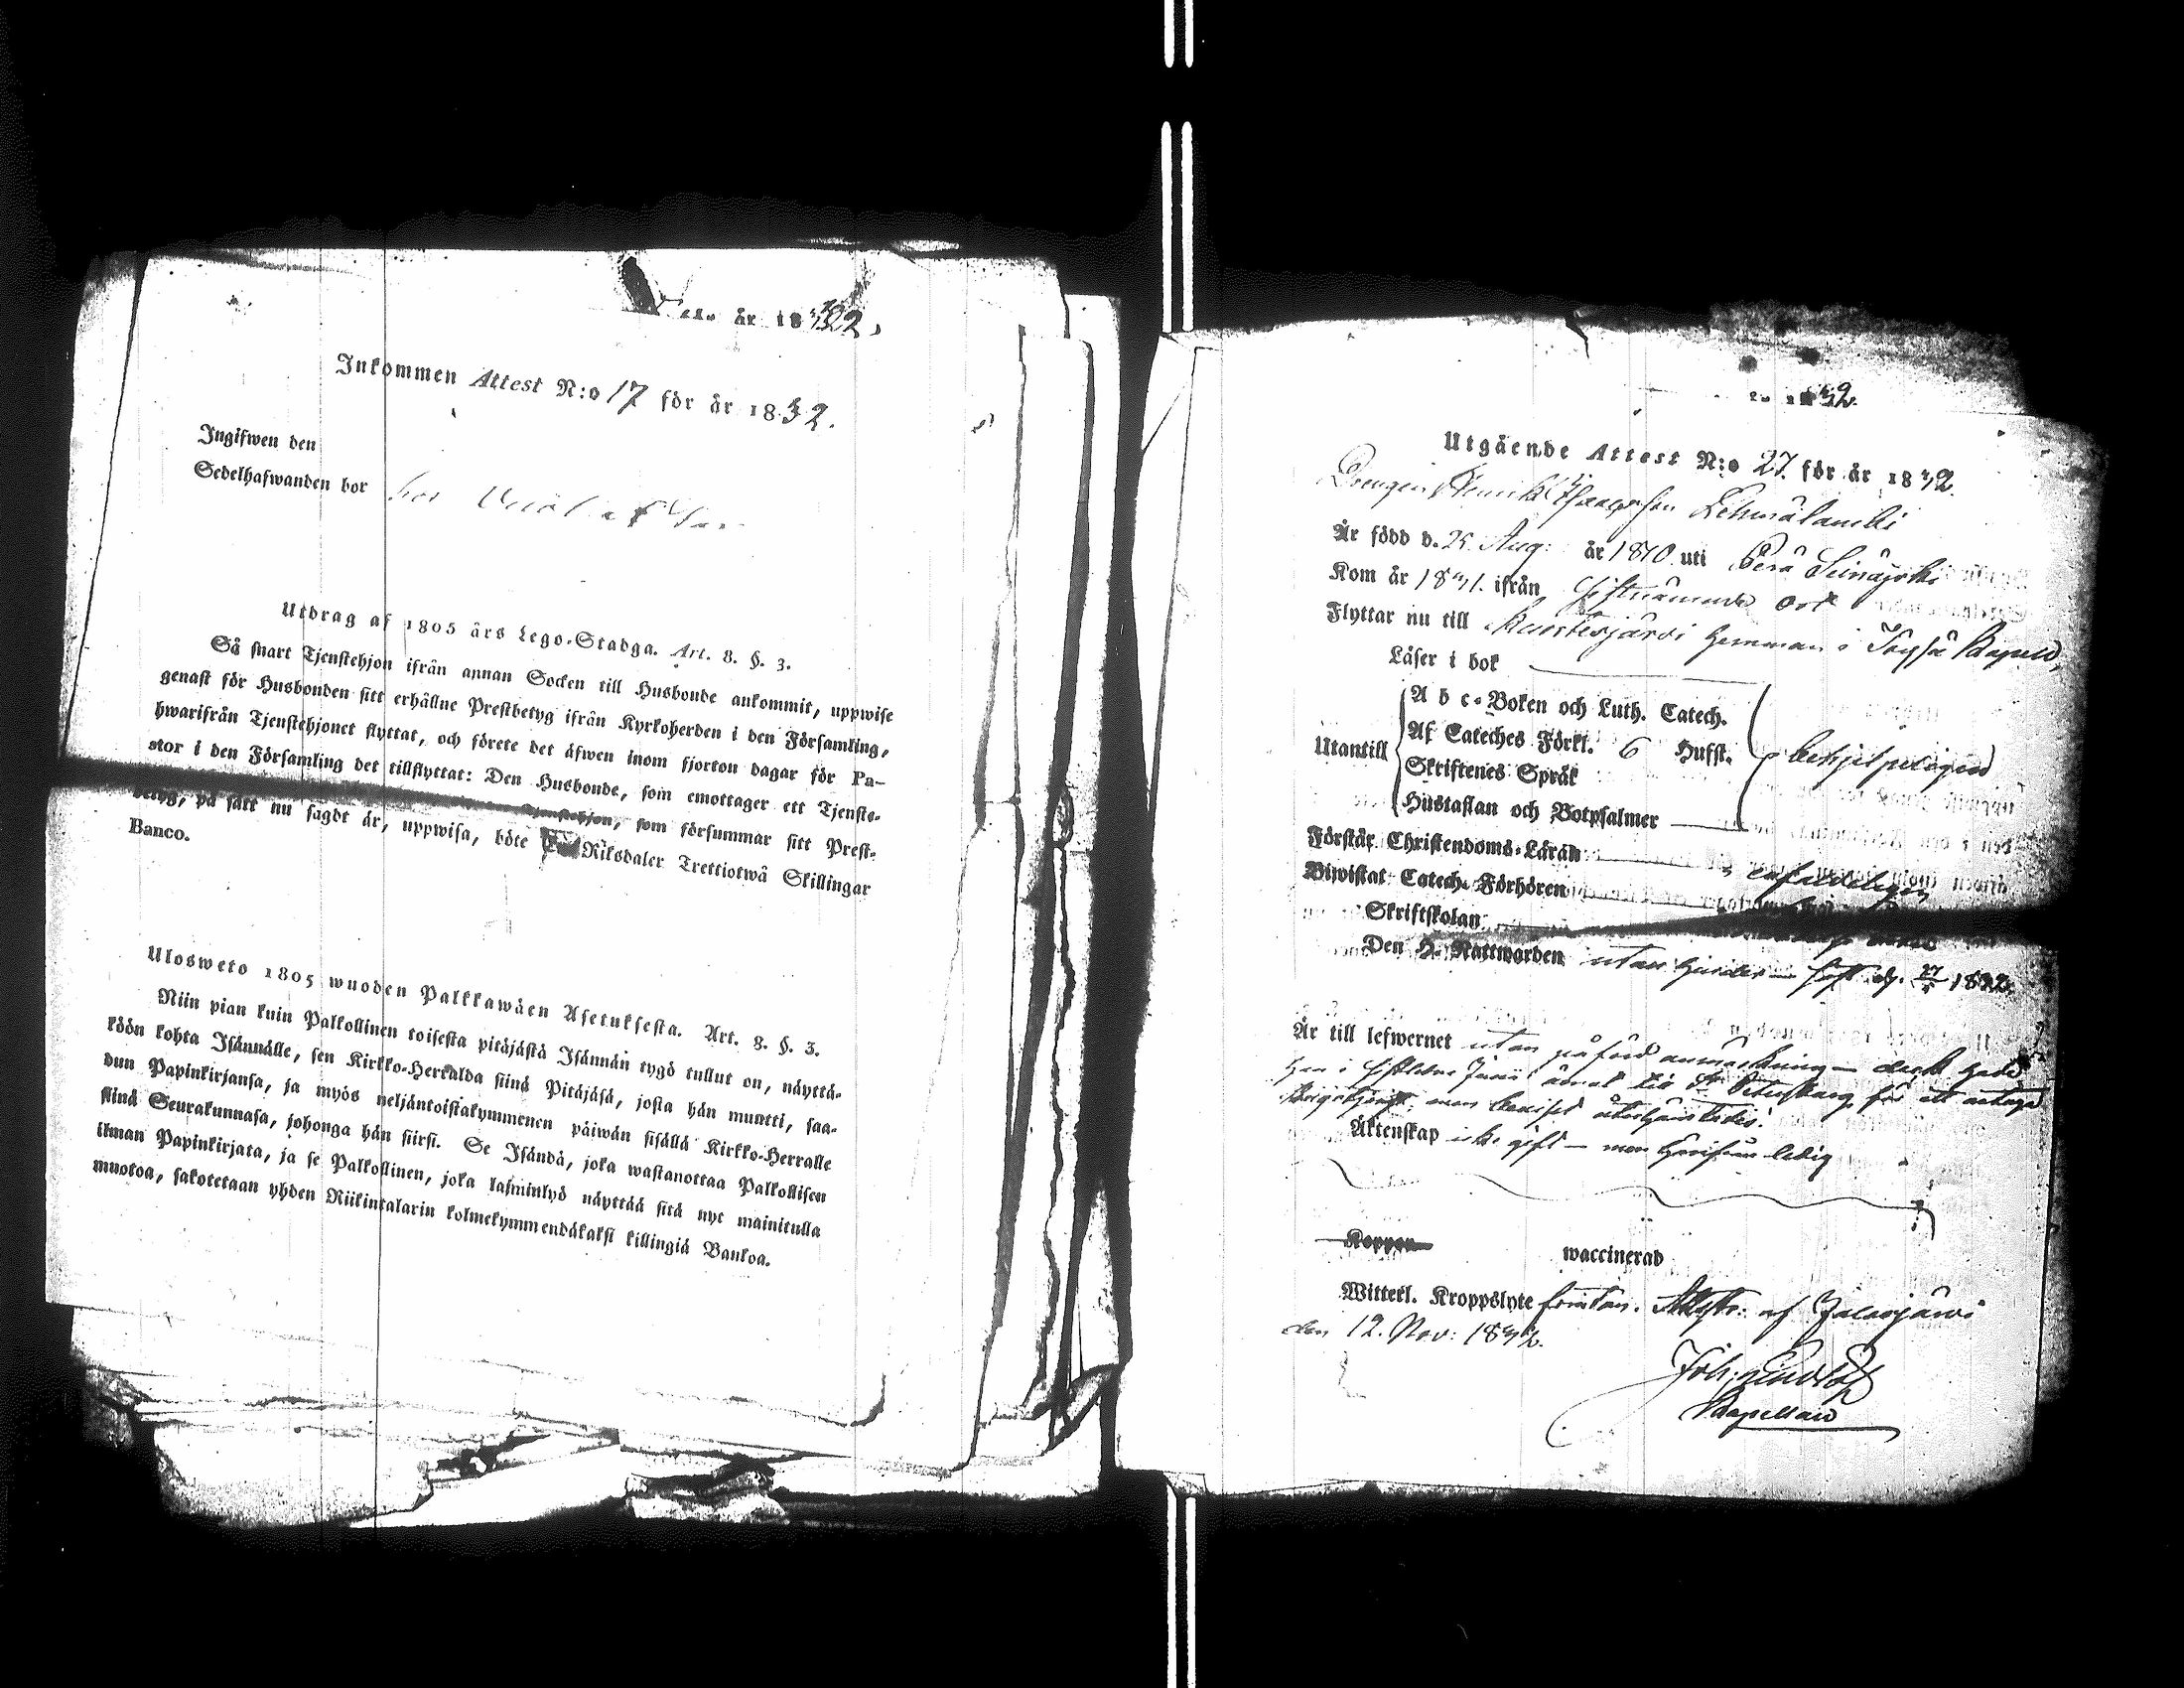 år 1832,
Inkommen Attest N:o 17 för år 1832.
Ingifwen den
Sedelhafwanden bor hos
Utdrag af 1805 års Lego-Stadga. Art. 8. §. 3.
Så snart Tjenstehjon ifrån annan Socken till Husbonde ankommit, uppwise
genast för Husbonden sitt erhållne Prestbetyg ifrån Kyrkoherden i den Församling,
hwarifrån Tjenstehjonet flyttat, och förete det äfwen inom fjorton dagar för Pa-
stor i den Församling det tillflyttat: Den Husbonde, som emottager ett Tjenste-
Tjenstehjon, som försummar sitt Prest-
betyg, på sätt nu sagdt är, uppwisa, böte Riksdaler Trettiotwå Skillingar
Banco.
Ulosweto 1805 wuoden Palkkawäen Asetuksesta. Art. 8. §. 3.
Niin pian kuin Palkollinen toisesta pitäjästä Isännän tygö tullut on, näyttä-
köön kohta Isännälle, sen Kirkko-Herralda siinä Pitäjäsä, josta hän muutti, saa-
dun Papinkirjansa, ja myös neljäntoistakymmenen päiwän sisällä Kirkko-Herralle
siinä Seurakunnasa, johonga hän siirsi. Se Isändä, joka wastanottaa Palkollisen
ilman Papinkirjata, ja se Palkollinen, joka laiminlyö näyttää sitä nyt mainitulla
muotoa, sakotetaan yhden Riikintalarin kolmekymmendäkaksi killingiä Bankoa.
32.
Utgående Attest N:o 27. för år 1832.
Drengen Henrik Isaacsson
Är född d. 25 Aug: år 1810 uti Perä Seinäjoki
Kom år 1831. ifrån sistnämnde ort
Flyttar nu till hemman i Töysä Capell,
Läser i bok
A b c-Boken och Luth. Catech.
Af Cateches Förkl. 6 Hufst.
Utantill behjelpeligen
Skriftenes Språk
Hustaflan och Botpsalmer
Förstår Christendoms-Läran enfaldeligen
Biwistat Catech. Förhören
Skriftskolan
Den H. Nattwarden utan hinder 1832.
Är till lefwernet utan påförd anmärkning —
han i sistledne Junii ärnat till St. Petersburg för att antaga
men
Äktenskap icke gift — men härifrån ledig
Koppor waccinerad
Witterl. Kroppslyte förutan. af Jalasjärvi
den 12. Nov: 1832.
Joh:
Capellan